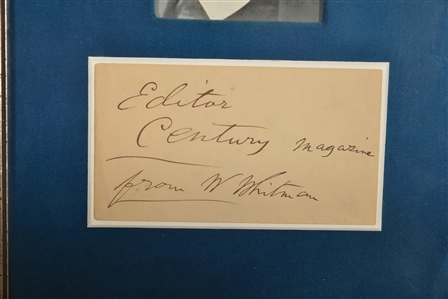 Editor
Century Magazine
from W Whitman